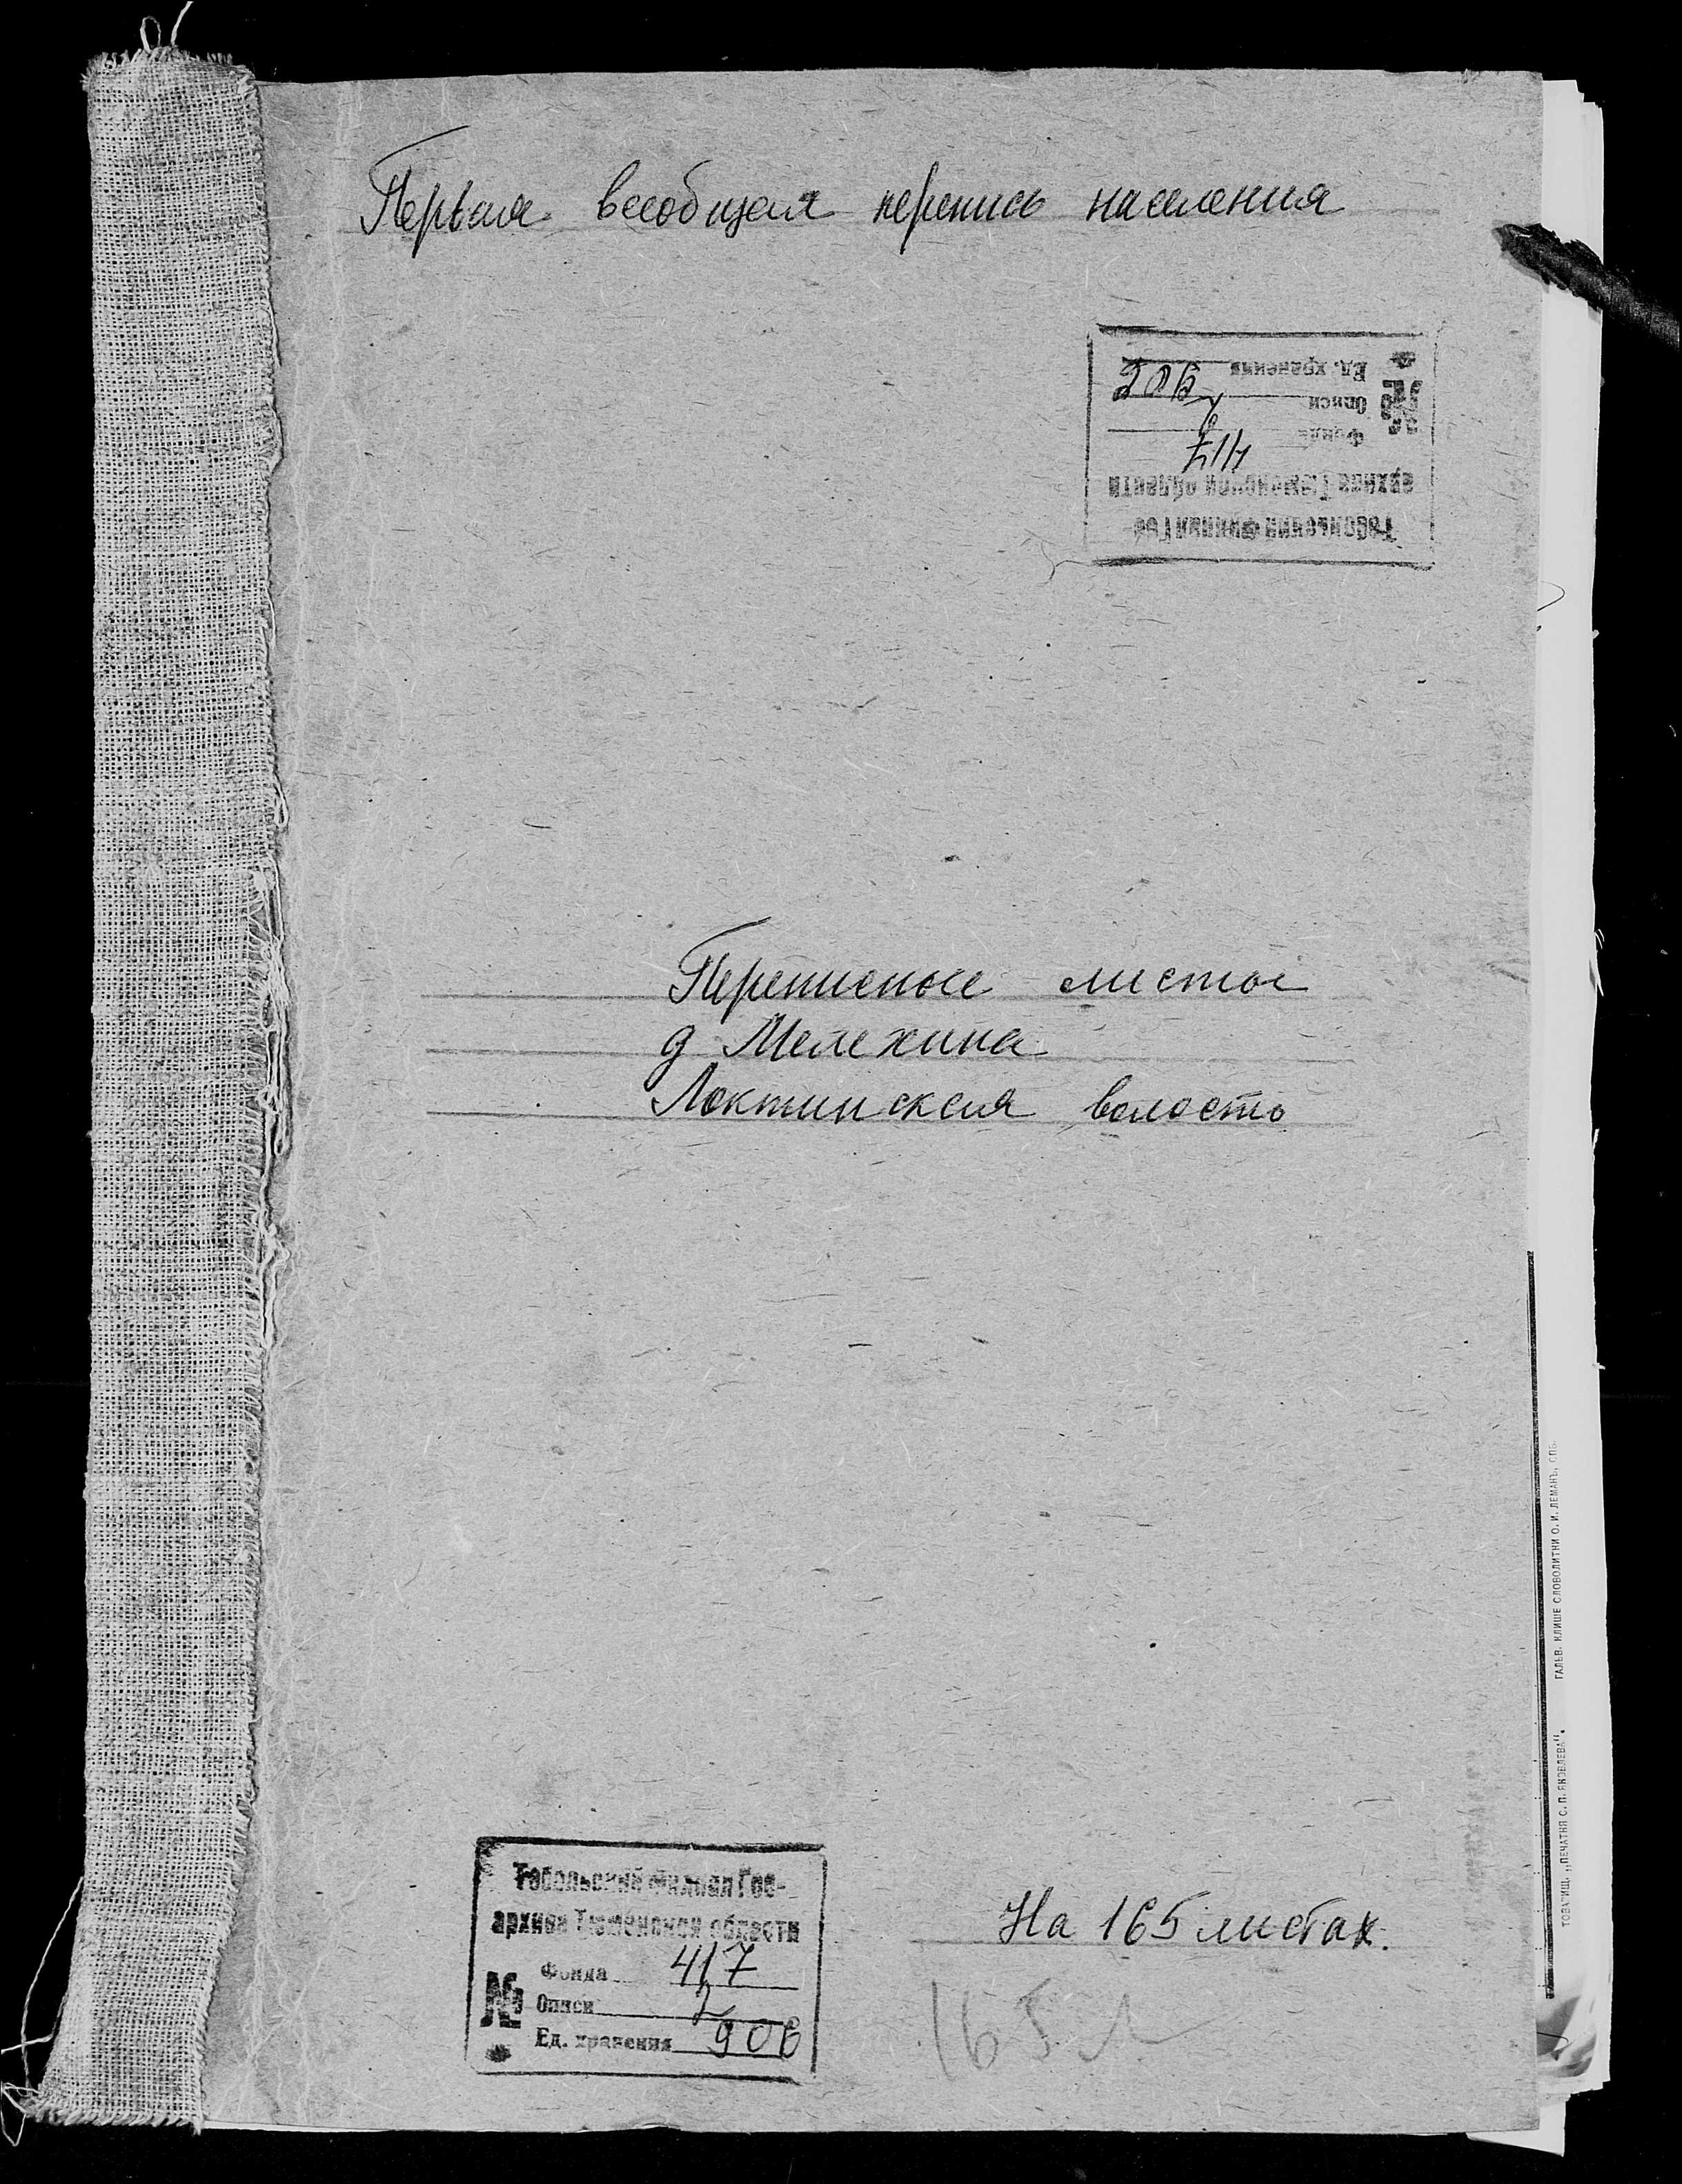 Первая всеобщая перепись населения
Тобольский филиал Гос-
архива Тюменской области
Фонда 417
Описи 2
№ Ед. хранения
Переписные листы
д Мелехина
Локтинская волость
Тобольский филиал Гос-
архива Тюменской области
Фонда 417
№ Описи 2
Ед. хранения 906
На 165 листах.
165 л
ТОВАРИЩ. „ПЕЧАТНЯ С. П. ЯКОВЛЕВА“. ГАЛЬВ. КЛИШЕ СЛОВОЛИТНИ О. И. ЛЕМАНЪ, СПБ.